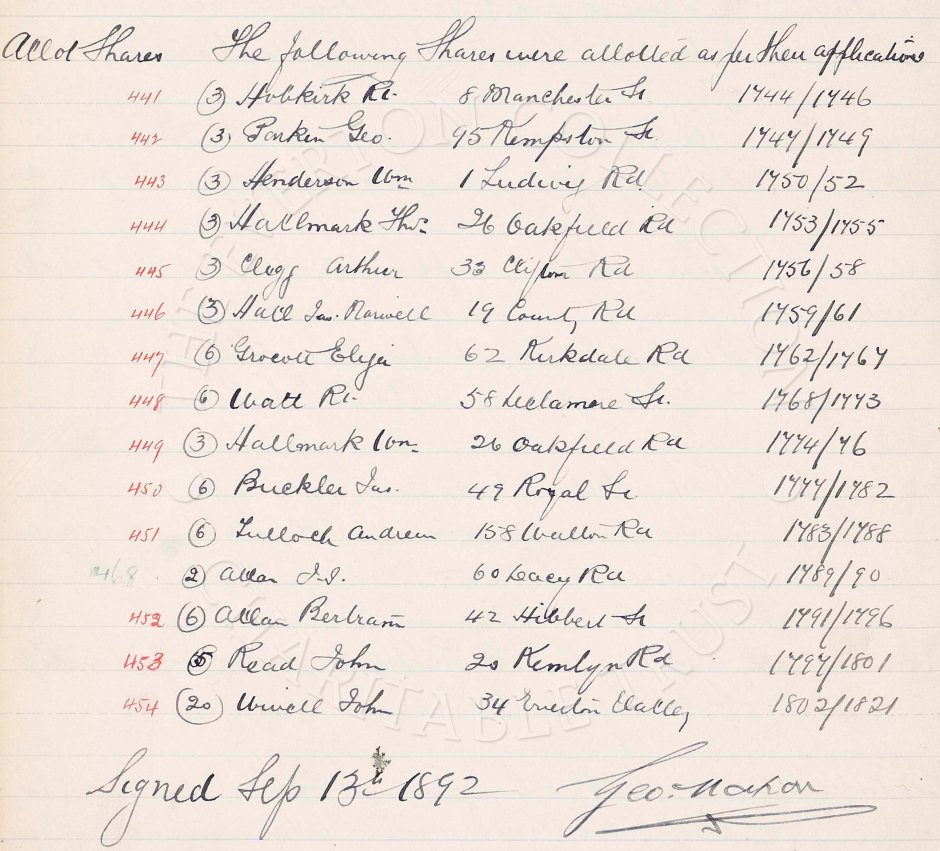 Allot Shares The following Shares were allotted as per their applications
441 (3) Hobkirk Rt. 8 Manchester St. 1744/1746
442 (3) Parkin Geo. 95 Kempston St 1747/1749
443 (3) Henderson Wm 1 Ludwig Rd 1750/52
444 (3) Hallmark Thos. 26 Oakfield Rd 1753/1755
445 (3) Clegg Arthur 33 Clifton Rd 1756/58
446 (3) Hall Jas. 19 County Rd 1759/61
447 (6) Grocott Elija 62 Kirkdale Rd 1762/1767
448 (6) Watt Rt. 58 Delamore St. 1768/1773
449 (3) Hallmark Wm 26 Oakfield Rd 1774/76
450 (6) Buckler Jas. 49 Royal St 1777/1782
451 (6) Tulloch Andrew 158 Walton Rd 1783/1788
468 (2) Allan 60 Lacey Rd 1789/90
452 (6) Allan Bertram 42 Hibbert St 1791/1796
453 (5) Read John 20 Kemlyn Rd 1797/1801
454 (20) Wivell John 34 Everton Valley 1802/1821
Signed Sep 13th 1892 Geo. Mahon
THE EVERTON COLLECTION
CHARITABLE TRUST